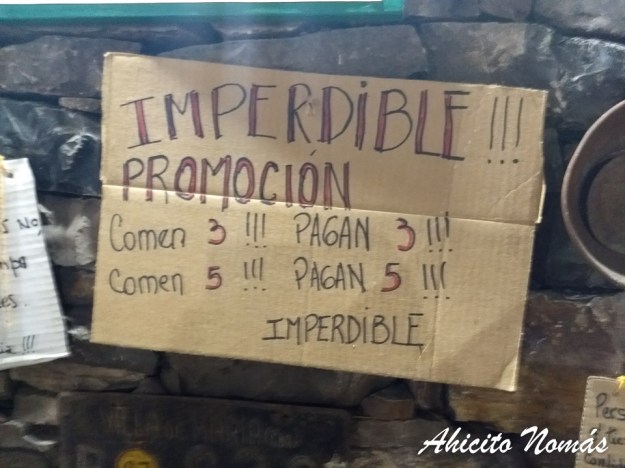 IMPERDIBLE !!!
PROMOCIÓN
Comen 3 !!! PAGAN 3 !!!
Comen 5 !!! PAGAN 5 !!!
IMPERDIBLE
s NO,
es.
!!!
Pers
Ahicito Nomás